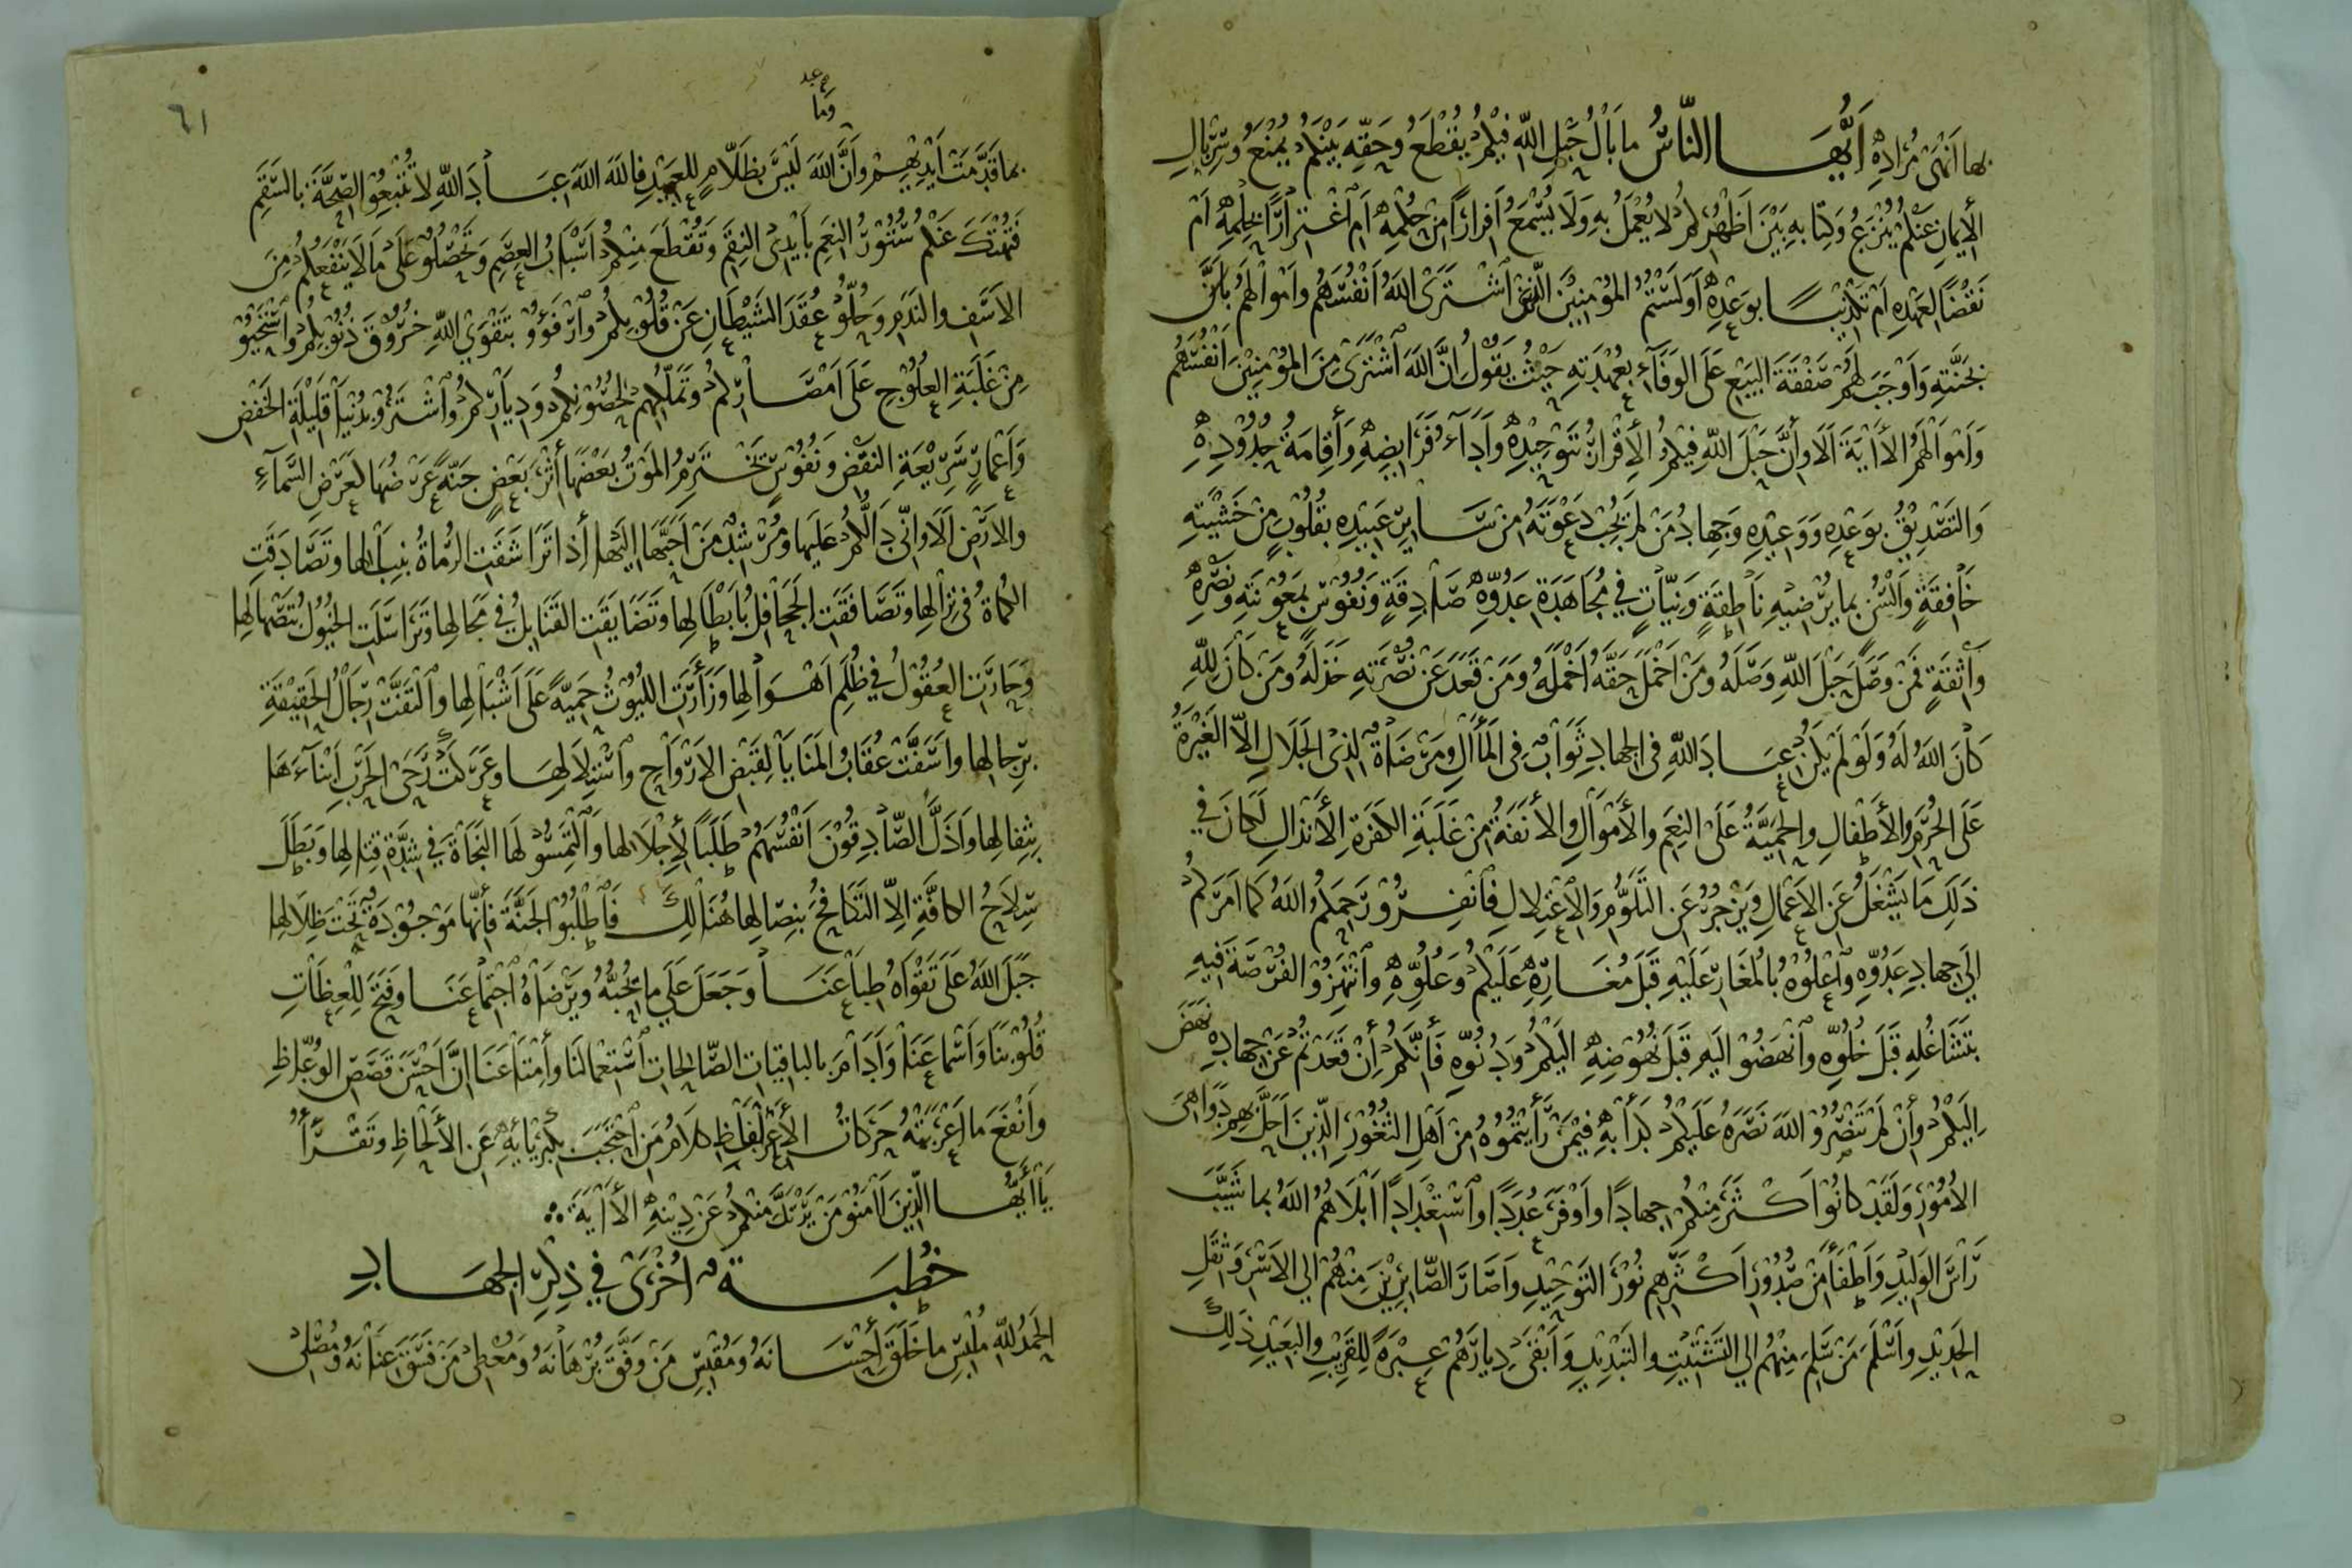 بها انتهى مراده أيها الناس ما بال حبل الله فيكم يقطع وحقه بينكم يمنع وسربال
الإيمان عنكم ينزع وكتابه بين أظهركم لا يعمل به ولا يسمع أفرارا من حكمه أم اغترارا بحلمه أم
نقضا لعهده أم تكذيبا بوعده أولستم المؤمنين الذين اشترى الله أنفسهم وأموالهم بأن
بجنته وأوجب لهم صفقة البيع على الوفاء بعهدته حيث يقول إن الله اشترى من المؤمنين أنفسهم
وأموالهم الآية ألا وأن حبل الله فيكم الإقران بتوحيده وأداء فرايضه وأقامة حدوده
والتصديق بوعده ووعيده وجهاد من لم يجب دعوته من ساير عبيده بقلوب من خشيته
خافقة وألسن بما يرضيه ناطقة ونيات في مجاهدة عدوه صادقة ونفوس بمعونته ونصره
واثقة فمن وصل حبل الله وصله ومن أخمل حقه أخمله ومن قعد عن نصرته خذله ومن كان لله
كان الله له ولو لم يكن عباد الله في الجهاد ثواب في المآل ومرضاة لذي الجلال إلا الغيرة
على الحرم والأطفال والحمية على النعم والأموال والأنفة من غلبة الكفرة الأنذال لكان في
ذلك ما يشغل عن الأعمال ويزجر عن التلوم والاعتلال فانفروا رحمكم الله كما أمركم
إلى جهاد عدوه واعلوه بالمغار عليه قبل مغاره عليكم وعلوه وانتهزوا الفرصة فيه
بتشاغله قبل خلوه وانهضوا اليه قبل نهوضه اليكم ودنوه فأنكم أن قعدتم عن جهاده نهض
إليكم وأن لم تنصروا الله نصره عليكم كدأبه فيمن رأيتموه من أهل الثغور الذين أحل بهم دواهي
الأمور ولقد كانوا أكثر منكم جهادا وأوفر عددا واستعدادا أبلاهم الله بما شيب
رأس الوليد وأطفأ من صدور أكثرهم نور التوحيد وأصار الصابرين منهم إلى الأسر وثقل
الحديد وأسلم من سلم منهم إلى التشتيت والتبديد وأبقى ديارهم عبرة للقريب والبعيد ذلك
٦١
وما
بما قدمت أيديهم وأن الله ليس بظلام للعبيد فالله الله عباد الله لا تتبعوا الصحة بالسقم
فتهتك عنكم ستور النعم بأيدي النقم وتقطع منكم أسباب العصم وتحصلوا على ما لا ينفعكم من
الأسف والندم وحلوا عقد الشيطان عن قلوبكم وارفؤوا بتقوى الله خروق ذنوبكم واستحيوا
من غلبة العلوج على أمصاركم وتملكهم لحصونكم ودياركم واشتروا بدنيا قليلة الخفض
وأعمار سريعة النقض ونفوس تخترم الموت بعضها أثر بعض جنة عرضها كعرض السماء
والأرض ألا وإني دالكم عليها ومرشد من أحبها إليها إذا تراشقت الرماة بنبالها وتصادقت
الكماة في نزالها وتصافقت الجحافل بأبطالها وتضايقت القنابل في مجالها وتراسلت الخيول بتصهالها
وحارت العقول في ظلم أهوالها وزأرت الليوث حمية على أشبالها والتفت رجال الحقيقة
برجالها وأسفت عقاب المنايا لقبض الأرواح واستلالها وعركت رحى الحرب أبناءها
بثفالها وأذل الصادقون أنفسهم طلبا لإجلالها والتمسوا لها النجاة في شدة قتالها وبطل
سلاح الكافة إلا التكافح بنصالها هنالك فاطلبوا الجنة فأنها موجودة تحت ظلالها
جبل الله على تقواه طباعنا وجعل على ما يحبه ويرضاه اجتماعنا وفتح للعظات
قلوبنا وأسماعنا وأدام بالباقيات الصالحات استعمالنا وأمتاعنا ان أحسن قصص الوعاظ
وأنفع ما أعربته حركات الألفاظ كلام من احتجب بكبريايه عن الألحاظ وتقرأ
يا أيها الذين آمنوا من يرتد منكم عن دينه الآية
خطبة أخرى في ذكر الجهاد
الحمد لله ملبس ما خلق أحسانه ومقبس من وفق برهانه ومعطي من فسق عنانه ومصلي